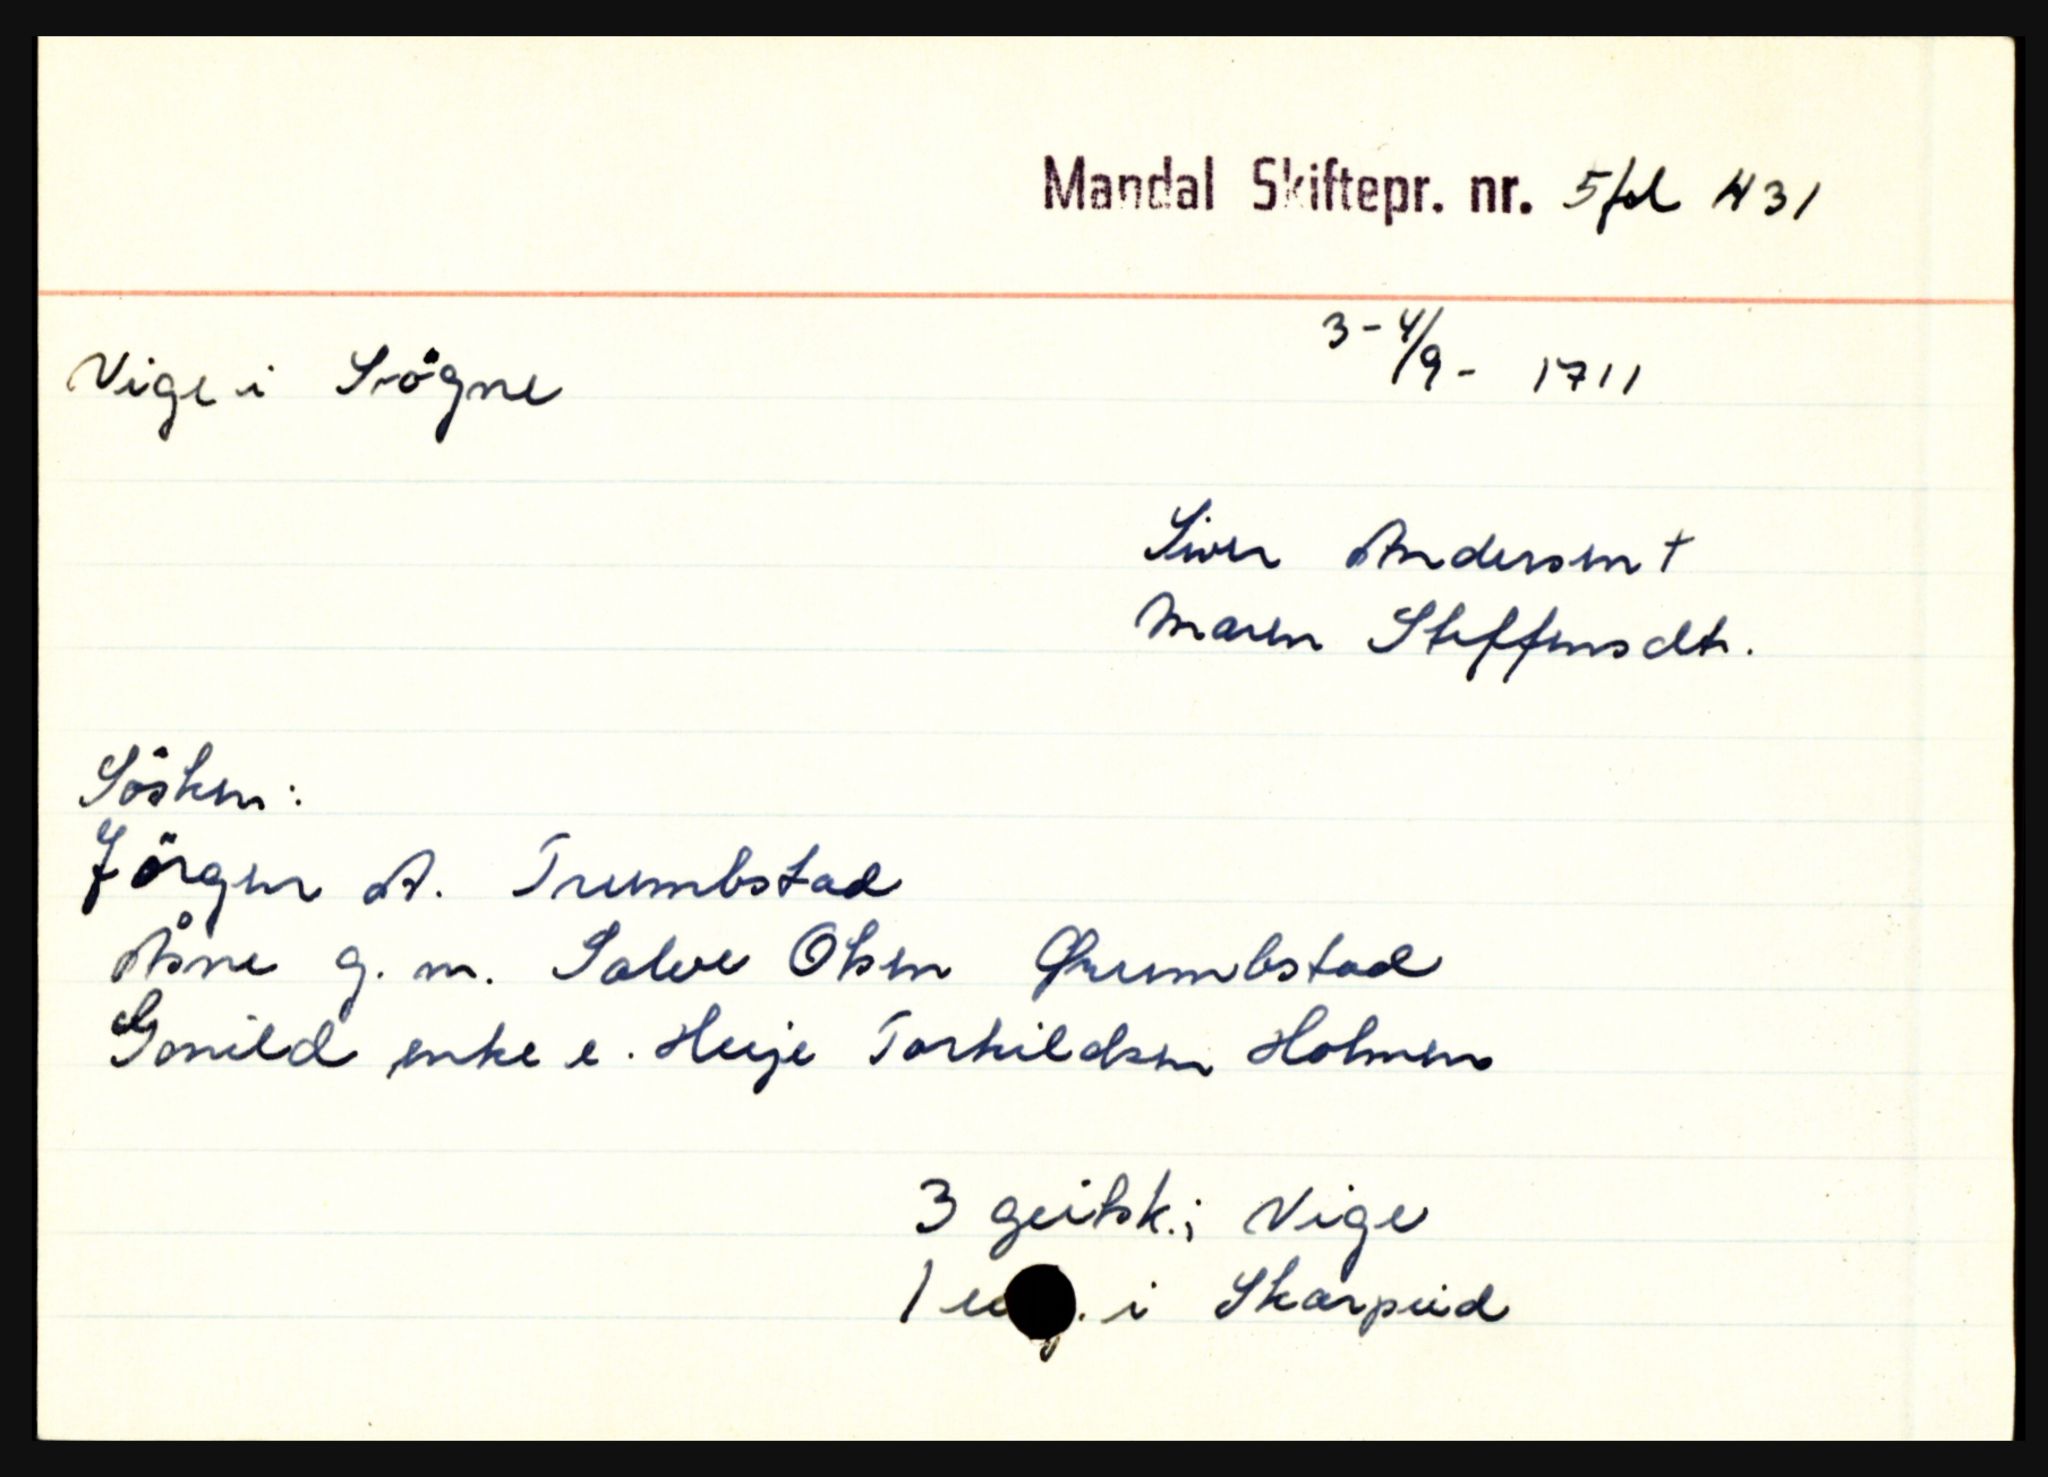 Mandal Skiftepr. nr. 5 fol 431
3-4/9- 1711
Vige i Sögne
Siver Andersen †
Maren Steffensdtr.
Sösken:
Jörgen A. Trumbstad
Åsne g. m. Salve Olsen Grumbstad
Gonild enke e. Heije Torkildsen Holmen
3 geitsk. i Vige
1 i Skarpeid